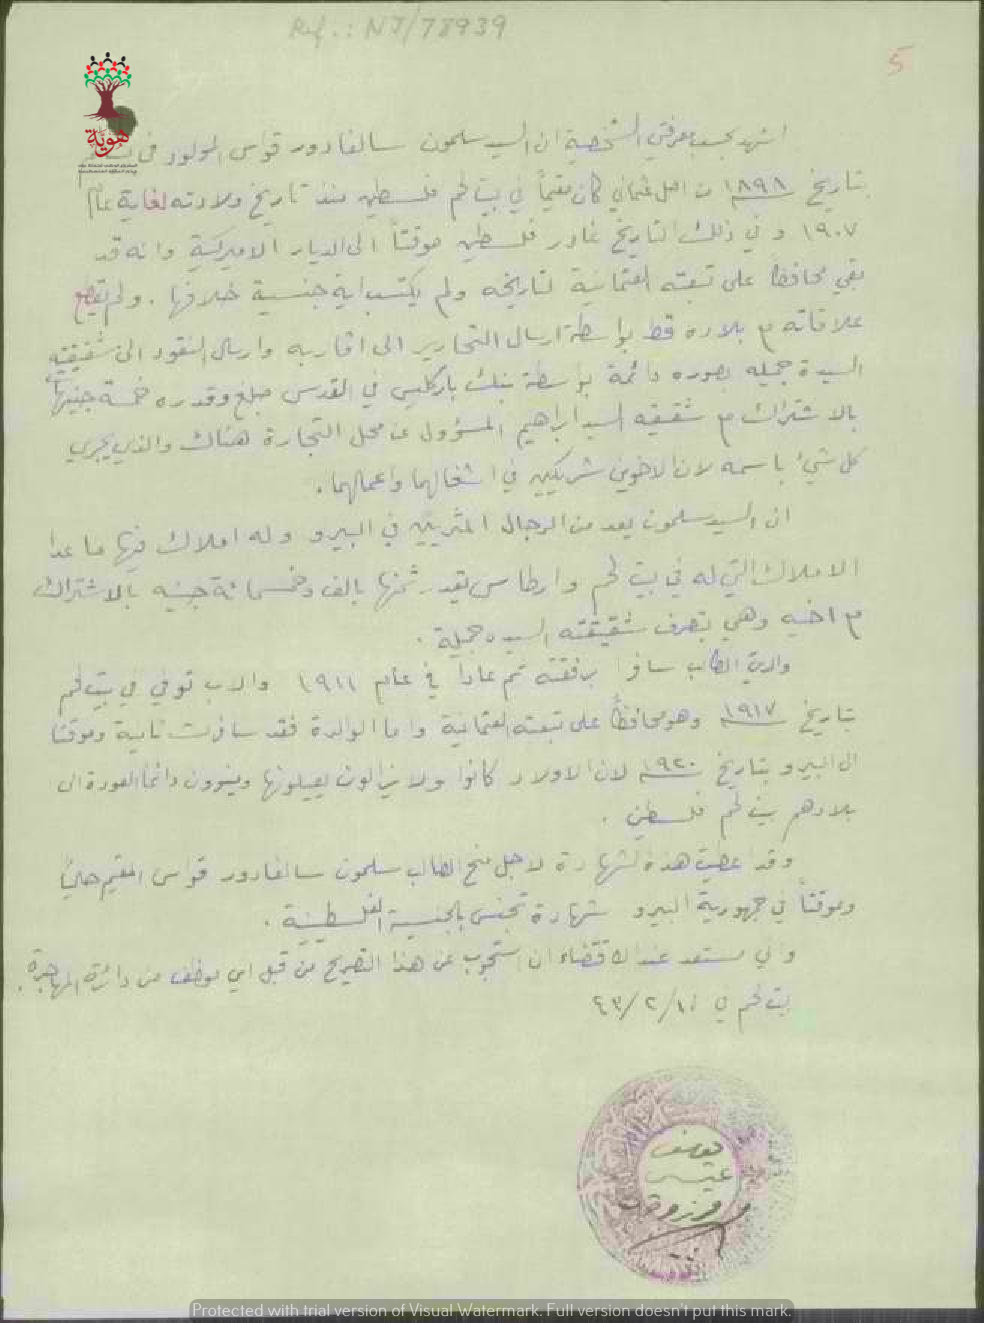 Ref.: NJ/78939
5
هويّة
اشهد بحسب معرفتي الشخصية ان السيد سلمون سالفادور قواس المولود في بيت لحم
بتاريخ ١٨٩٨ من اصل عثماني كان مقيماً في بيت لحم فلسطين منذ تاريخ ولادته لغاية عام
١٩٠٧ و في ذلك التاريخ غادر فلسطين موقتاً الى الديار الاميركية وانه قد
بقي محافظاً على تبعته العثمانية لتاريخه ولم يكتسب اية جنسية خلافها . ولم يقطع
علاقاته مع بلاده قط بواسطة ارسال التحارير الى اقاربه وارسال النقود الى شقيقته
السيدة جميله بصوره دائمة بواسطة بنك باركليس في القدس مبلغ وقدره خمسة جنيهات
بالاشتراك مع شقيقه السيد ابراهيم المسؤول عن محل التجارة هناك والذي يجري
كل شيء باسمه لان الاخوين شريكين في اشغالهما واعمالهما .
ان السيد سلمون يعد من الرجال المثريين في البيرو وله املاك فيها ما عدا
الاملاك التي له في بيت لحم وارطاس يقدر ثمنها بالف وخمسمائة جنيه بالاشتراك
مع اخيه وهي بتصرف شقيقته السيده جميلة .
والدي الطالب سافرا برفقته ثم عادا في عام ١٩١١ والاب توفي في بيت لحم
بتاريخ ١٩١٧ وهو محافظاً على تبعته العثمانية واما الوالدة فقد سافرت ثانية وموقتا
الى البيرو بتاريخ ١٩٢٠ لان الاولاد كانوا ولا يزالون يعيلونها وينوون دائماً العودة الى
بلادهم بيت لحم فلسطين .
وقد اعطيت هذه الشهادة لاجل منح الطالب سلمون سالفادور قواس المقيم حالياً
وموقتاً في جمهورية البيرو شهادة تجنس بالجنسية الفلسطينية .
واني مستعد عند الاقتضاء ان استجوب عن هذا التصريح من قبل اي موظف من دائرة المهاجرة .
بيت لحم في
يوسف
عيسى
Protected with trial version of Visual Watermark. Full version doesn't put this mark.